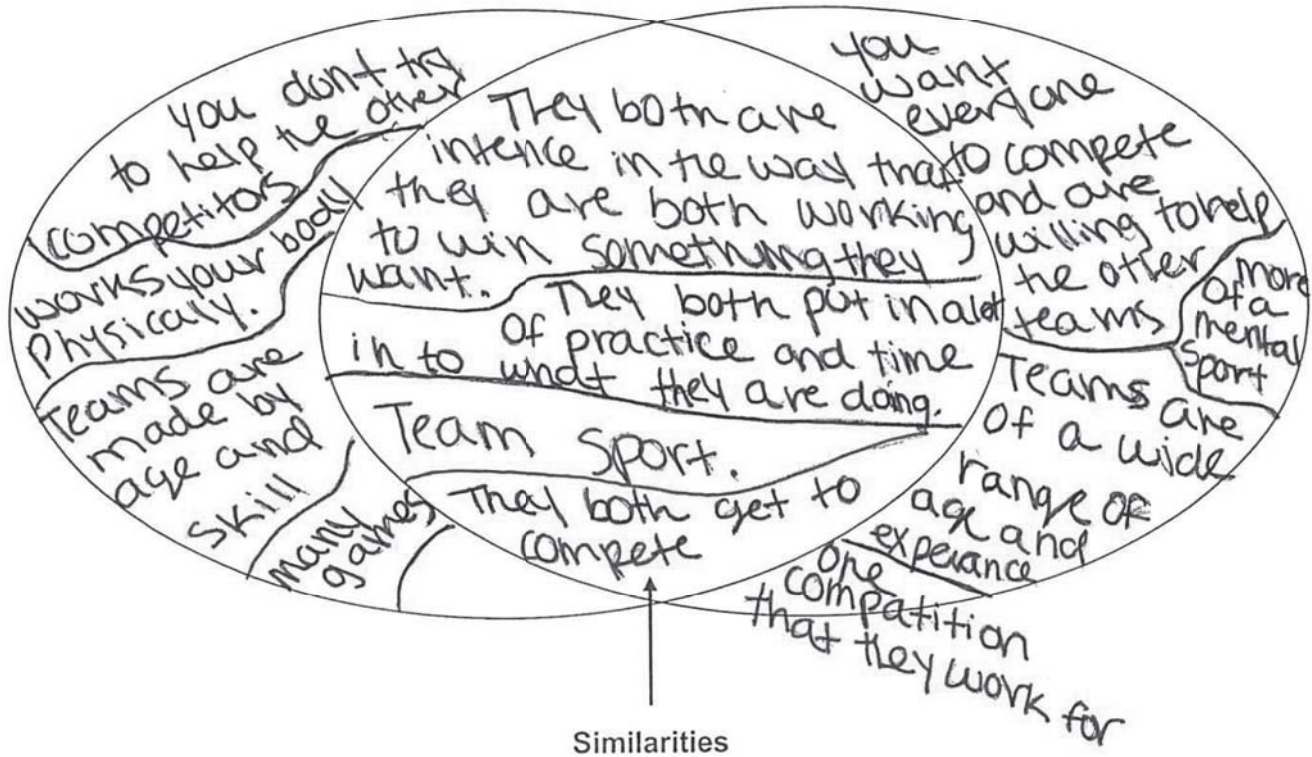 you dont try
to help the other
competitors
works your body
Physicaly.
Teams are
made by
age and
skill
many
games
They both are
intence in the way that
they are both working
to win something they
want.
They both put in alot
of practice and time
in to what they are doing.
Team sport.
They both get to
compete
you
want
everyone
to compete
and are
willing to help
the other
teams
more
of a
mental
sport
Teams are
of a wide
range of
age and
experance
one
compatition
that they work for
Similarities